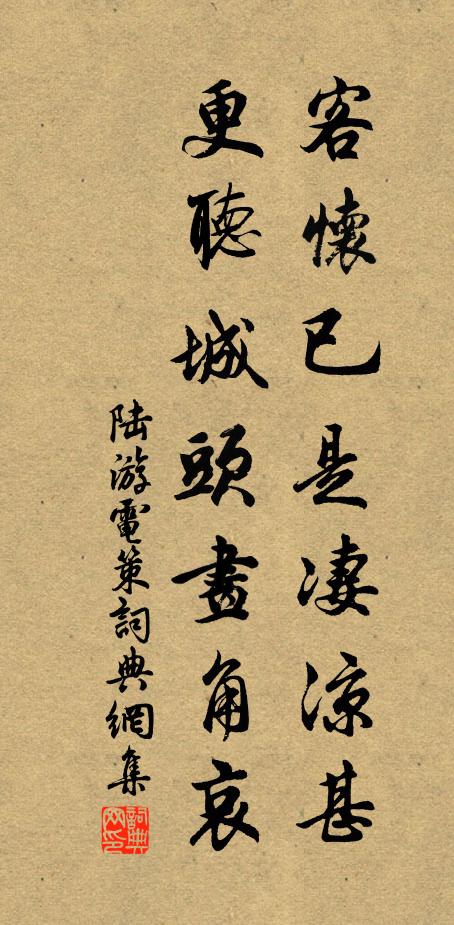 客懷已是凄涼甚
更聽城頭畫角哀
陸游電策詞典網集
詞典網印